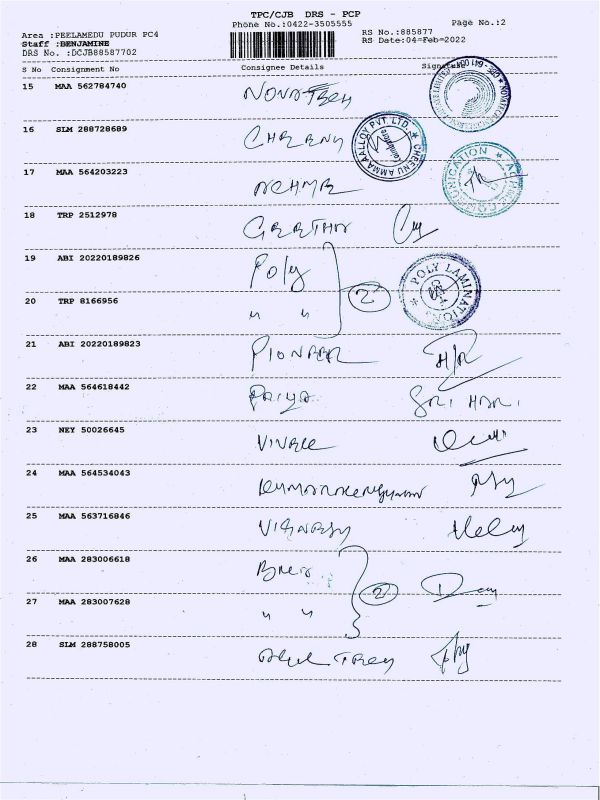 TPC/CJB DRS - PCP
Phone No.:0422-3505555
Page No.:2
Area :PEELAMEDU PUDUR PC4
Staff :BENJAMINE
DRS No. :DCJB88587702
RS No.:885877
RS Date:04-Feb-2022
S No Consignment No Consignee Details Signature
15 MAA 562784740
16 SLM 288728689
CHEENU AMMA AALLOY PVT. LTD. Coimbatore
17 MAA 564203223
COMMUNICATION
18 TRP 2512978 GEETHA
19 ABI 20220189826 Poly
2
POLY LAMINATIONS
20 TRP 8166956 " "
21 ABI 20220189823 PIONEER
22 MAA 564618442 PRIYA SRI HARI
23 NEY 50026645
24 MAA 564534043
25 MAA 563716846 VIGNESH
26 MAA 283006618
2
27 MAA 283007628 " "
28 SLM 288758005